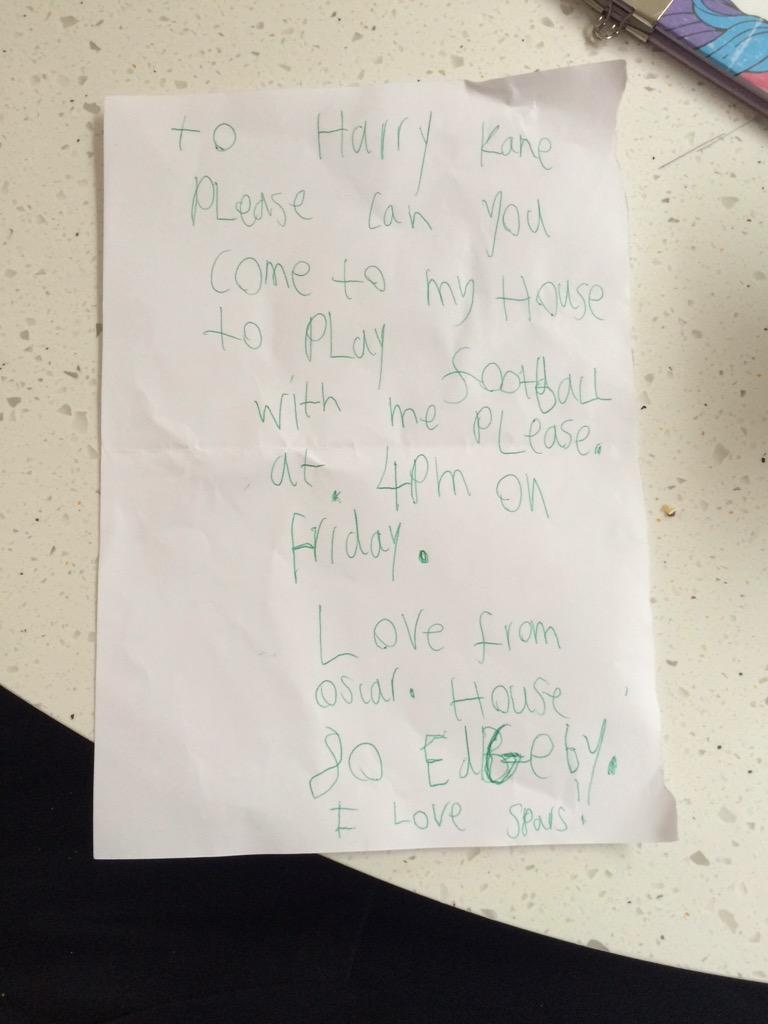 to Harry Kane
PLease can you
come to my House
to PLay football
with me PLease.
at. 4pm on
friday.
Love from
oscar. House
80 EdGeby.
I Love Spurs!